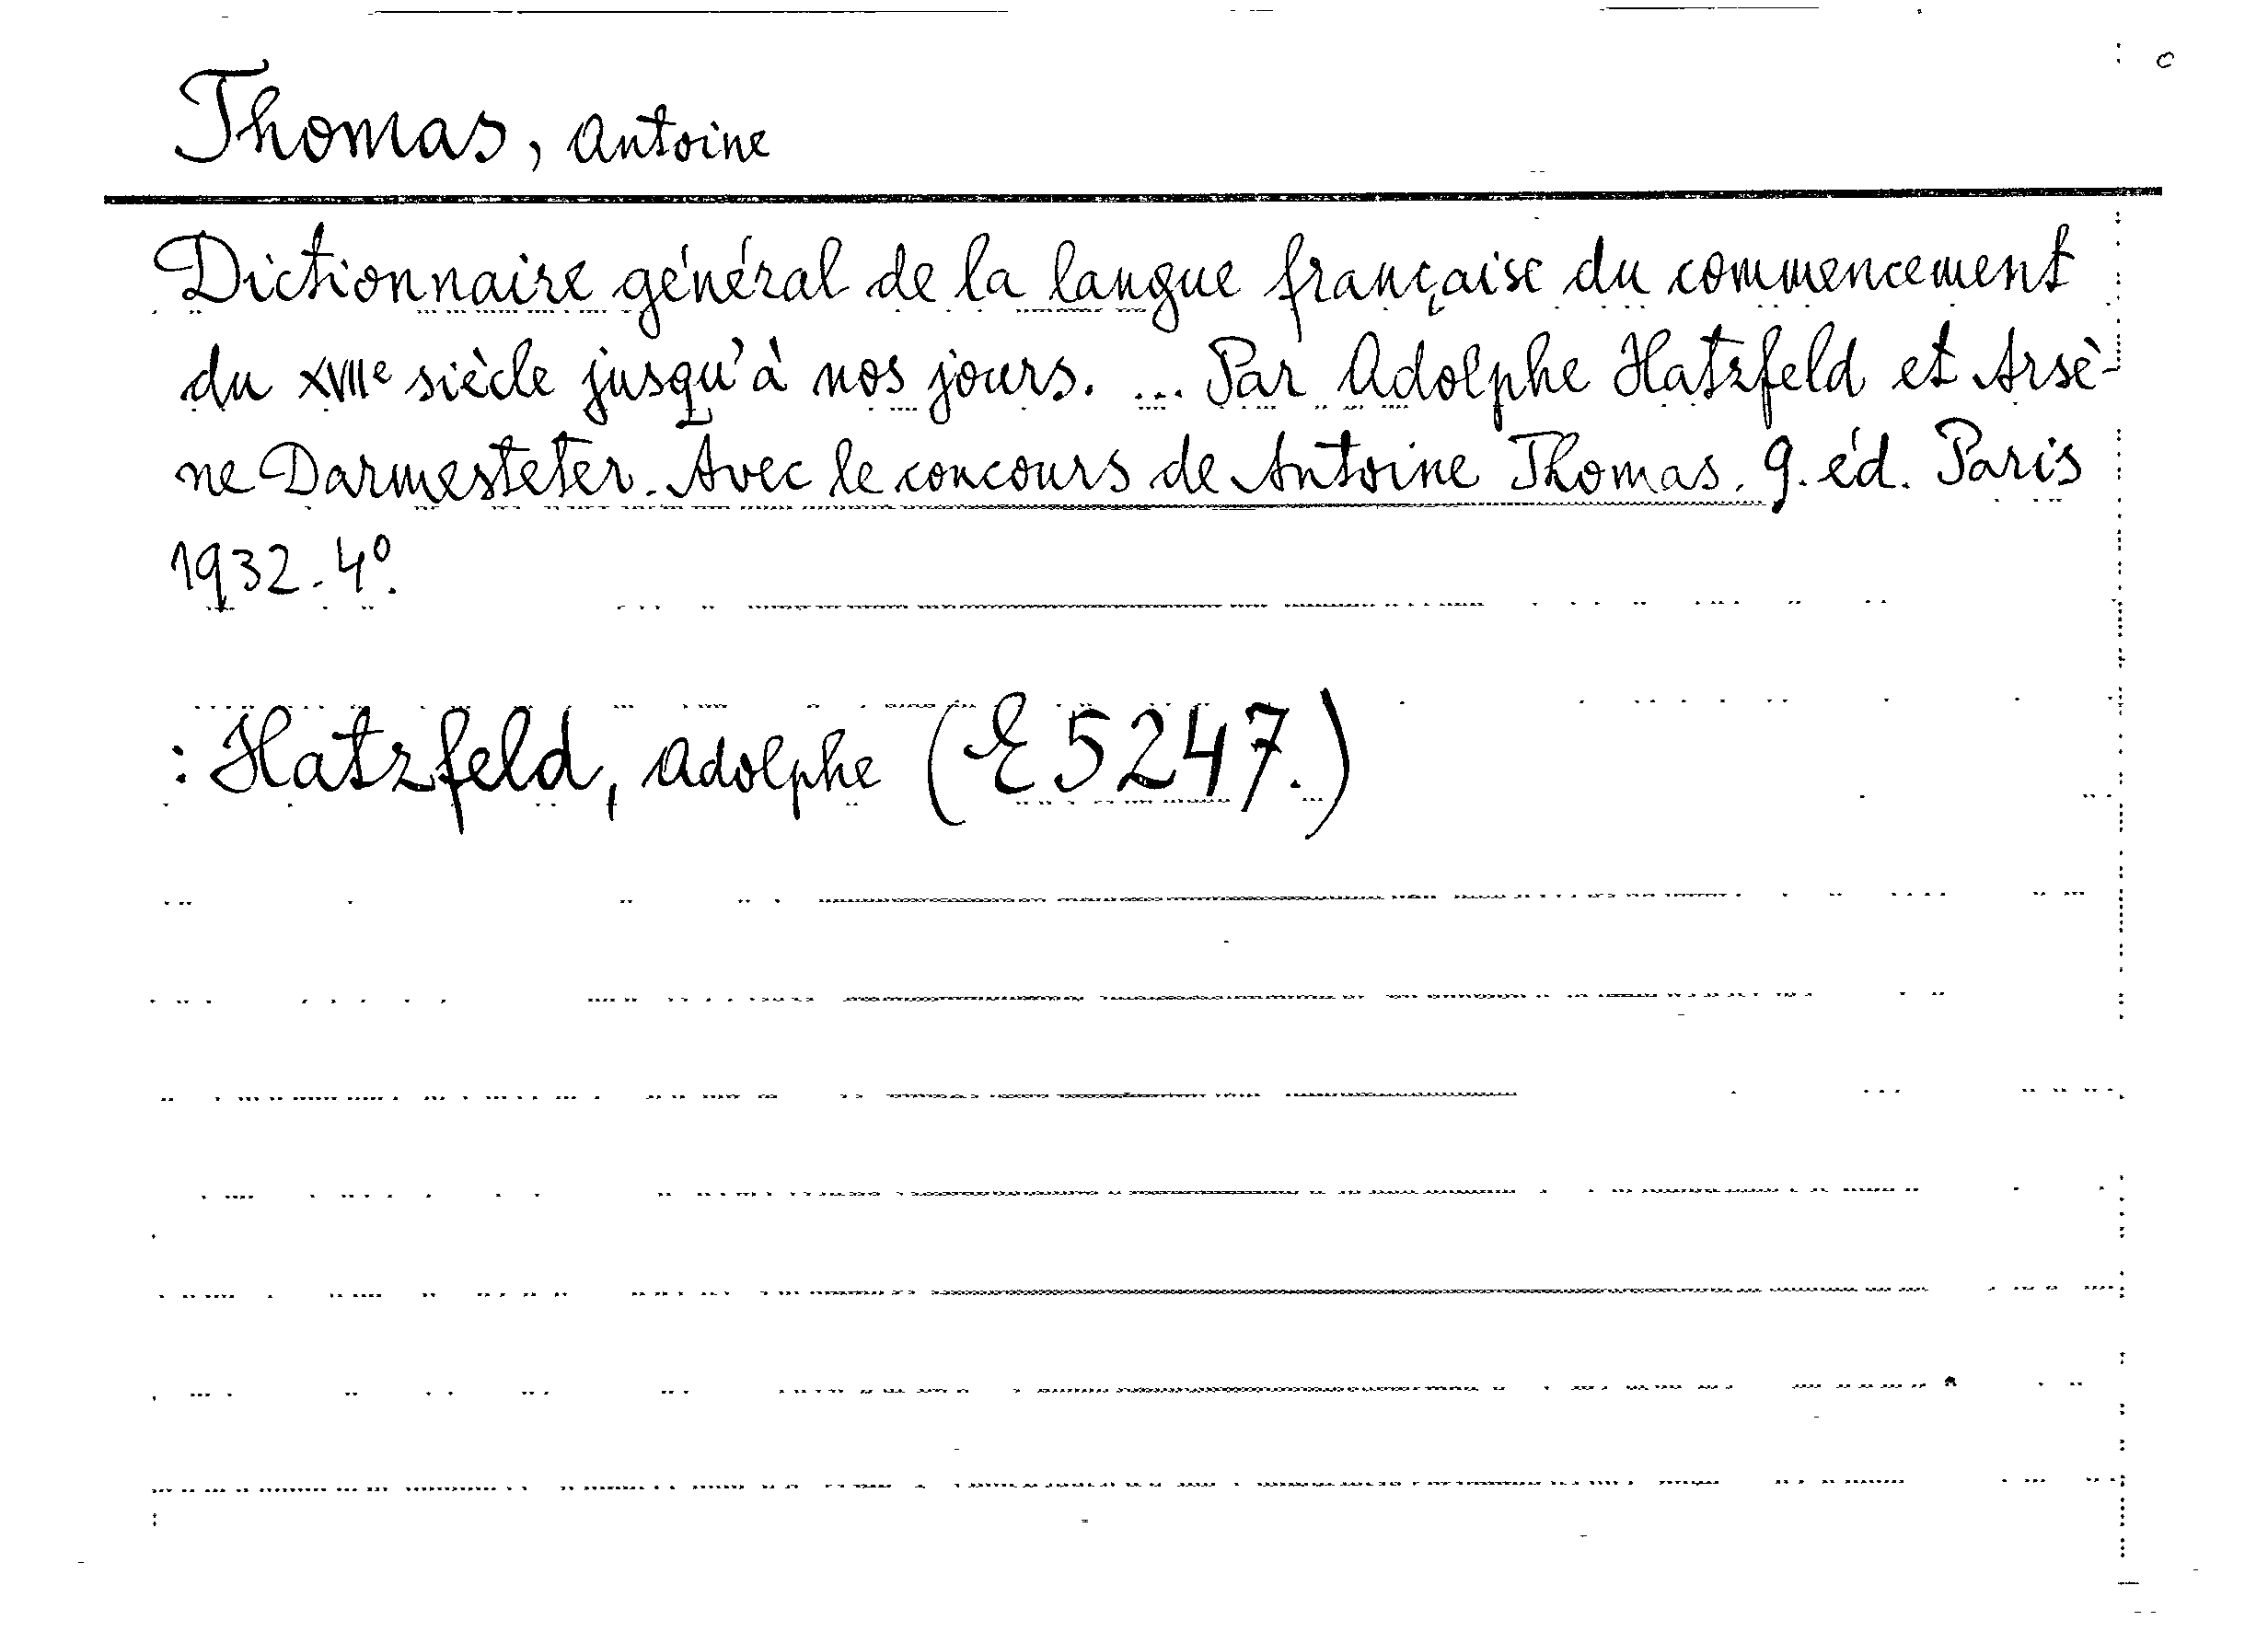 Thomas, Antoine
Dictionnaire général de la langue française du commencement
du XVIIe siècle jusqu'à nos jours. ... Par Adolphe Hatzfeld et Arsè-
ne Darmesteter. Avec le concours de Antoine Thomas. 9. éd. Paris
1932. 4º.
: Hatzfeld, Adolphe (E 5247.)